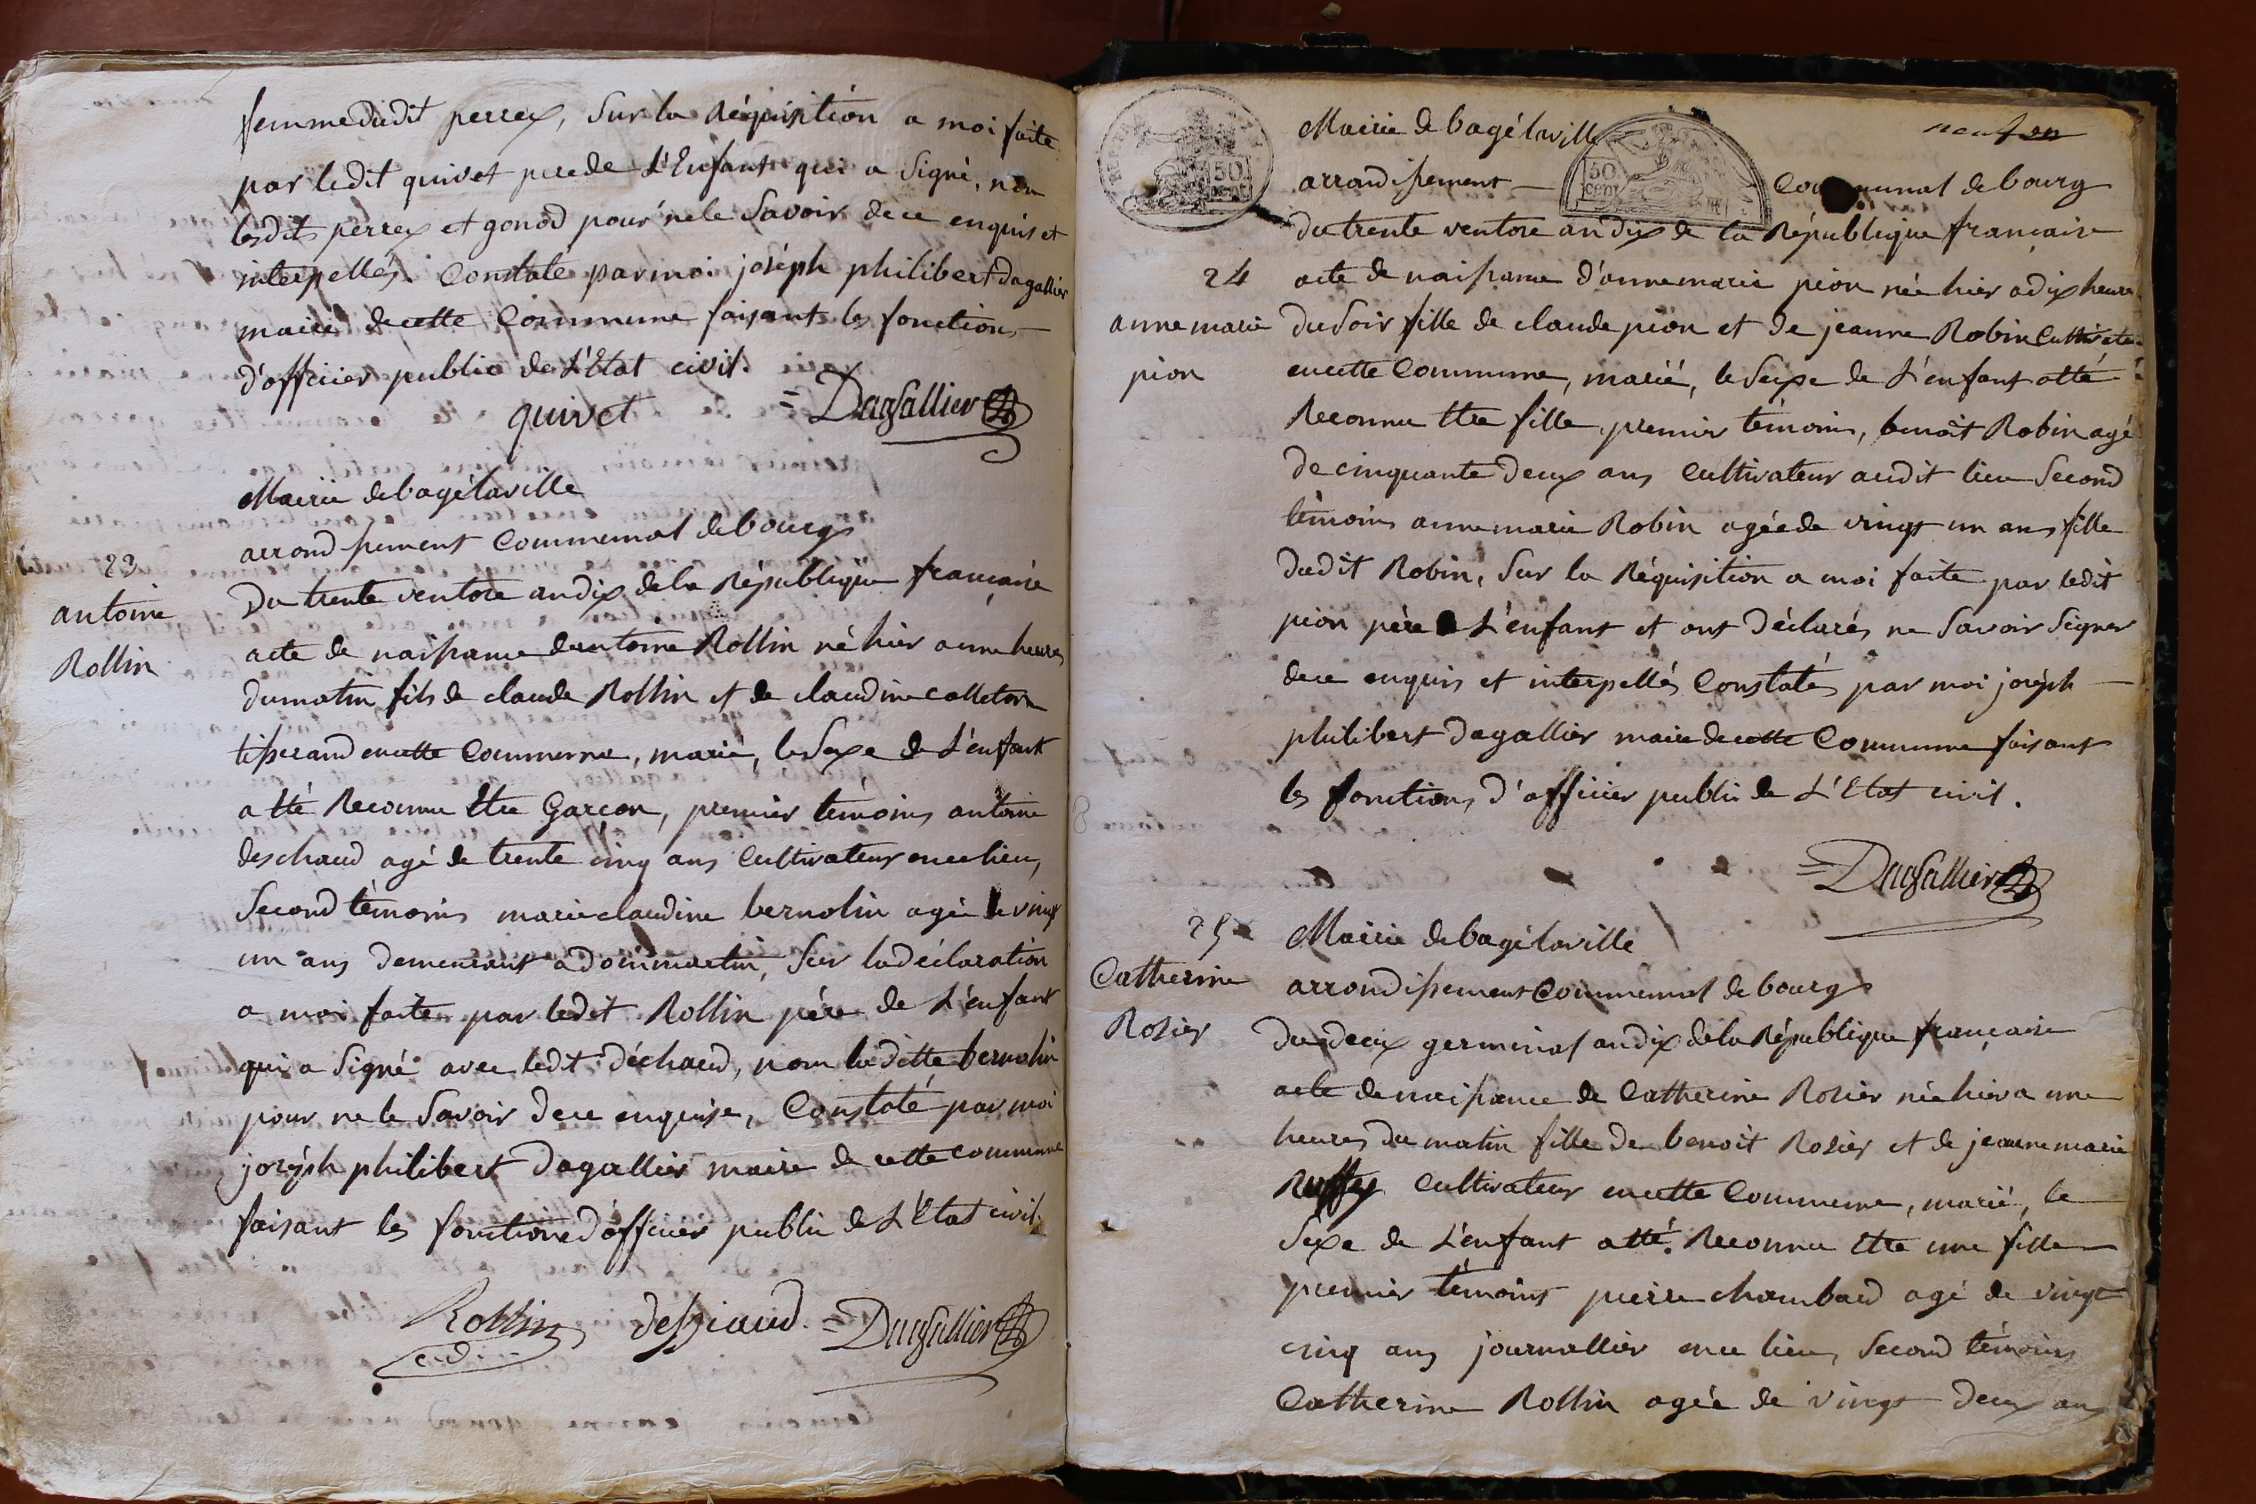 femme dudit perrex, Sur la Réquisition a moi faite
par ledit quivet pere de L'Enfant qui a Signé, non
lesdits perrex et gonod pour ne le Savoir de ce enquis et
interpellés. Constaté par moi joséph philibert Dagallier
maire de cette Commune faisant les fonctions
d'officier public de L'Etat civil.
quivet = Dagallier
Mairie de bagé laville
arrondissement Communal de bourg
23
antoine
Rollin
Du trente ventose an dix de la République francaise
acte de naissance d'antoine Rollin né hier a une heures
du matin fils de claude Rollin et de claudine colleton
tisserand en cette Commune, marié, le Sexe de L'enfant
a été Reconnu être Garçon, premier témoins antoine
deschaud agé de trente cinq ans Cultivateur en ce lieu,
Second témoins marie claudine bernolin agée de vingt
un ans demeurant a dommartin, Sur la déclaration
a moi faite par ledit Rollin pére de L'enfant
qui a Signé avec ledit déchaud, non laditte bernolin
pour ne le Savoir de ce enquise, Constaté par moi
joséph philibert Dagallier maire de cette commune
faisant les fonctions d'officier public de L'Etat civil.
Rollin deschaud. = Dagallier
Mairie de bagé laville
arrondissement Communal de bourg
50 cent
du trente ventose an dix de la République francaise
24
anne marie
pion
acte de naissance d'anne marie pion née hier a dix heures
du Soir fille de claude pion et de jeanne Robin Cultivateur
en cette Commune, marié, le Sexe de L'enfant a été
Reconnu être fille, premier témoins, benoît Robin agé
de cinquante deux ans Cultivateur audit lieu Second
témoins anne marie Robin agée de vingt un ans fille
dudit Robin, Sur la Réquisition a moi faite par ledit
pion père L'enfant et ont déclarés ne Savoir Signer
de ce enquis et interpellés Constatés par moi joséph
philibert Dagallier maire de cette Commune faisant
les fonctions d'officier public de L'Etat civil.
= Dagallier
25
Catherine
Rosier
Mairie de bagé laville
arrondissement Communal de bourg
du deux germinal an dix de la République francaise
acte de naissance de Catherine Rosier née hier a une
heures du matin fille de benoit Rosier et de jeanne marie
Ruffy Cultivateur en cette Commune, marié, le
Sexe de L'enfant a été Reconnu être une fille
premier témoins pierre chambard agé de vingt
cinq ans journallier en ce lieu, Second témoins
Catherine Rollin agée de vingt deux ans